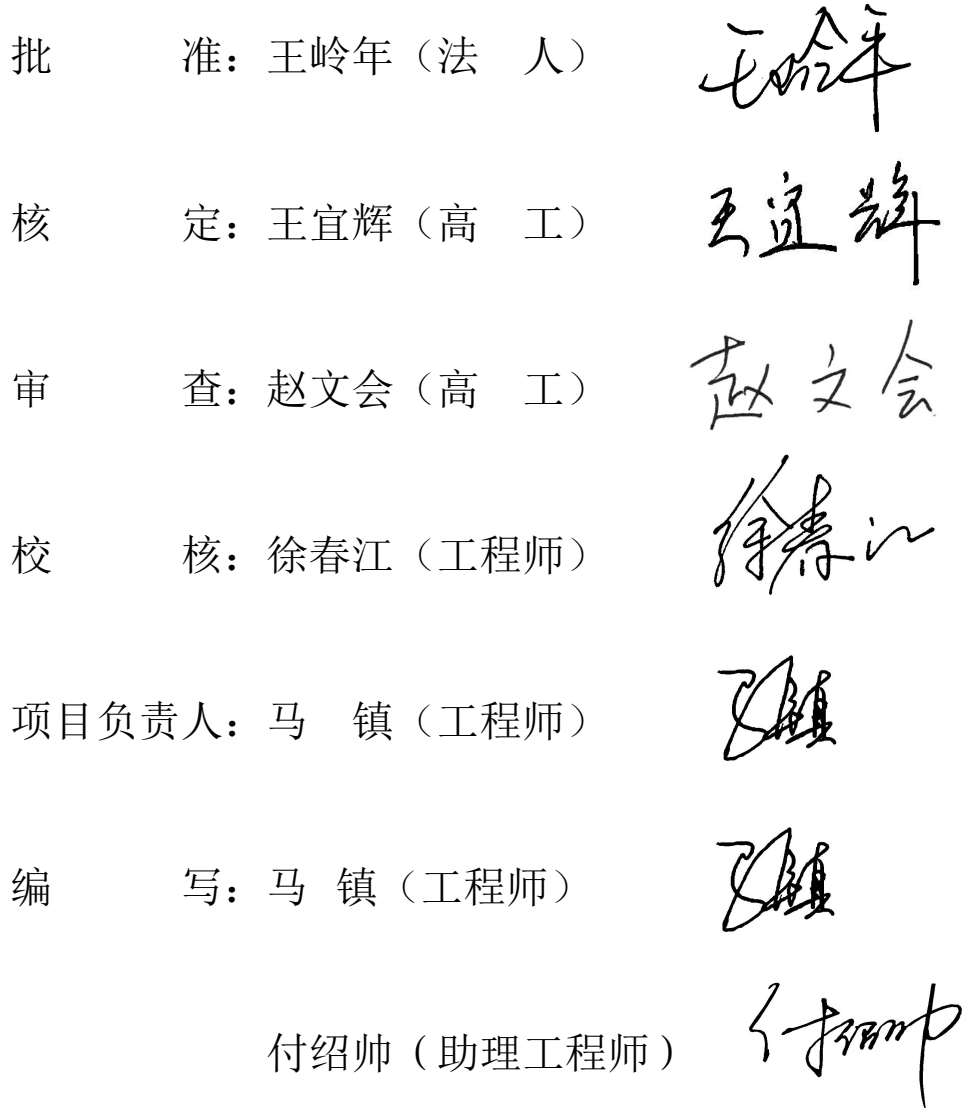 批 准：王岭年（法 人） 王岭年
核 定：王宜辉（高 工） 王宜辉
审 查：赵文会（高 工） 赵文会
校 核：徐春江（工程师） 徐春江
项目负责人：马 镇（工程师） 马镇
编 写：马 镇（工程师） 马镇
付绍帅（助理工程师） 付绍帅